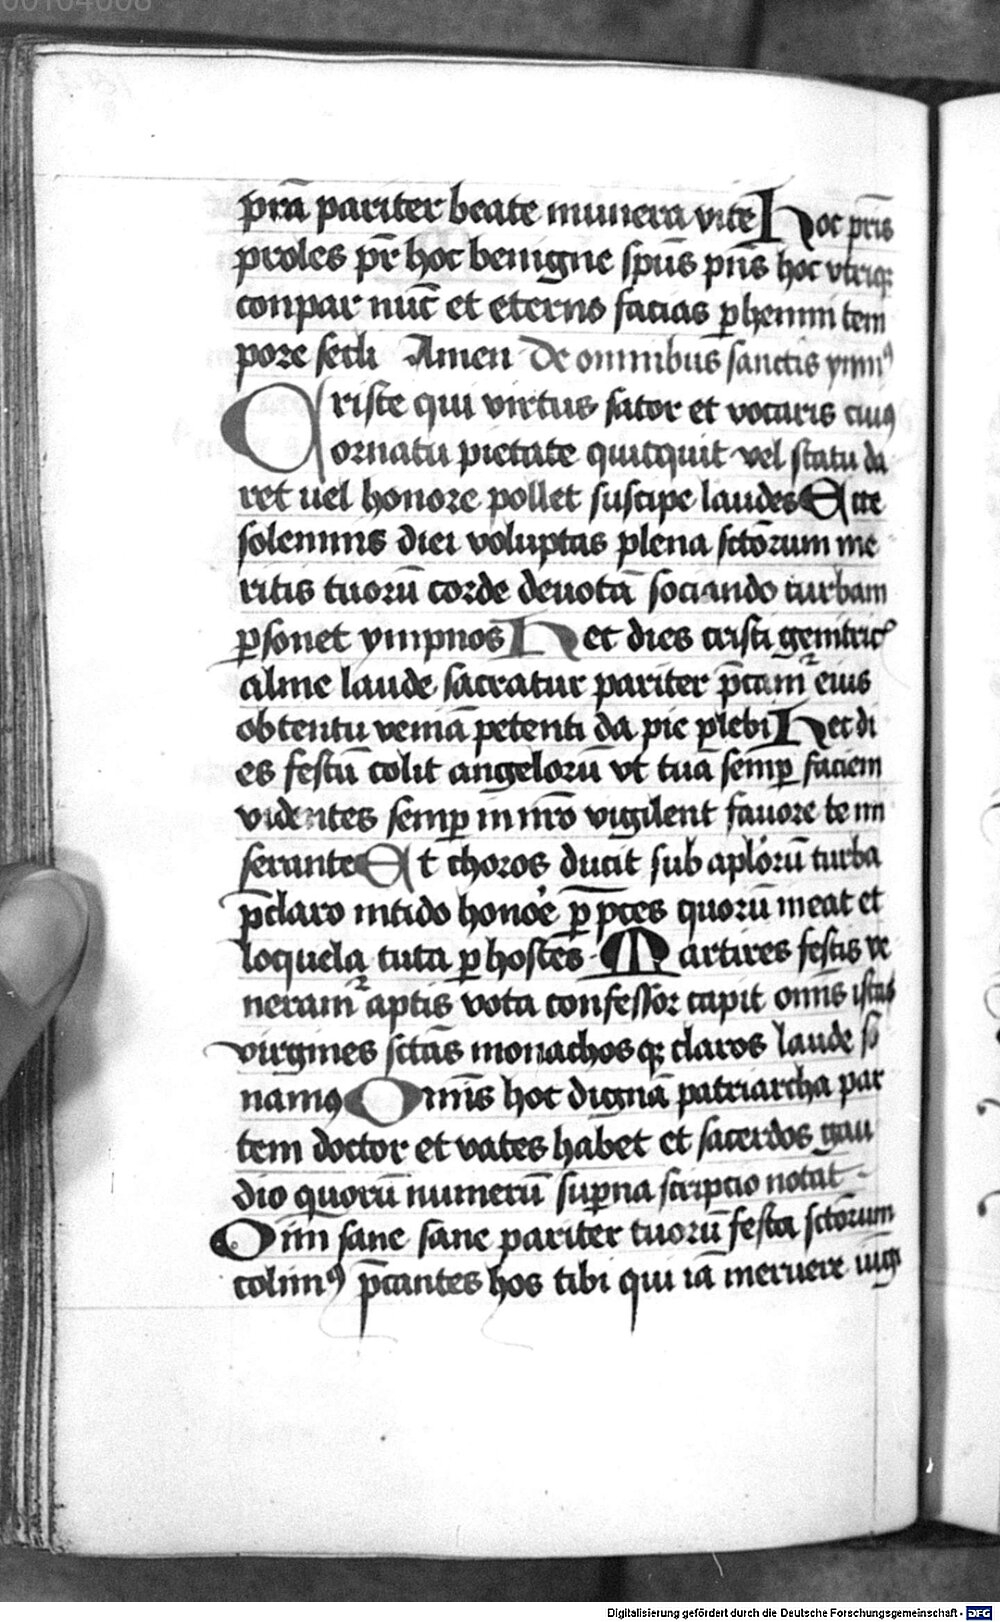 00104008
prā pariter beate munera vite Hoc pr̄is
proles pr̄ hoc benigne sp̄us pn̄s hoc vtriqꝫ
conpar nūc et eterno facias ꝑhenni tem
pore secli Amen De omnibus sanctis ymnꝰ
Criste qui virtus sator et vocaris cuiꝰ
ornatu pietate quitquit vel statu da
ret uel honore pollet suscipe laudes Ecce
solemnis diei voluptas plena sctōrum me
ritis tuorū corde deuotā sociando turbam
ꝑsonet ympnos Hec dies cristi genitricꝭ
alme laude sacratur pariter p̄camr̄ eius
obtentu veniā petenti da pie plebi Hec di
es festū colit angelorū vt tuā semꝑ faciem
videntes semꝑ in nr̄o vigilent fauore te mi
serante Et choros ducit sub apl̄orū turba
p̄claro nitido honoē ꝑ p̄ces quorū meat et
loquela tuta ꝑ hostes Martires festis ve
neramr̄ aptis vota confessor capit omīs istas
virgines sctās monachosqꝫ claros laude so
namꝰ Omīs hoc dignā patriarcha par
tem doctor et vates habet et sacerdos gau
dio quorū numerū suꝑna scripcio notat
Oim̄ sane sane pariter tuorū festa sctōrum
colimꝰ p̄cantes hos tibi qui iā meruere
Digitalisierung gefördert durch die Deutsche Forschungsgemeinschaft - DFG